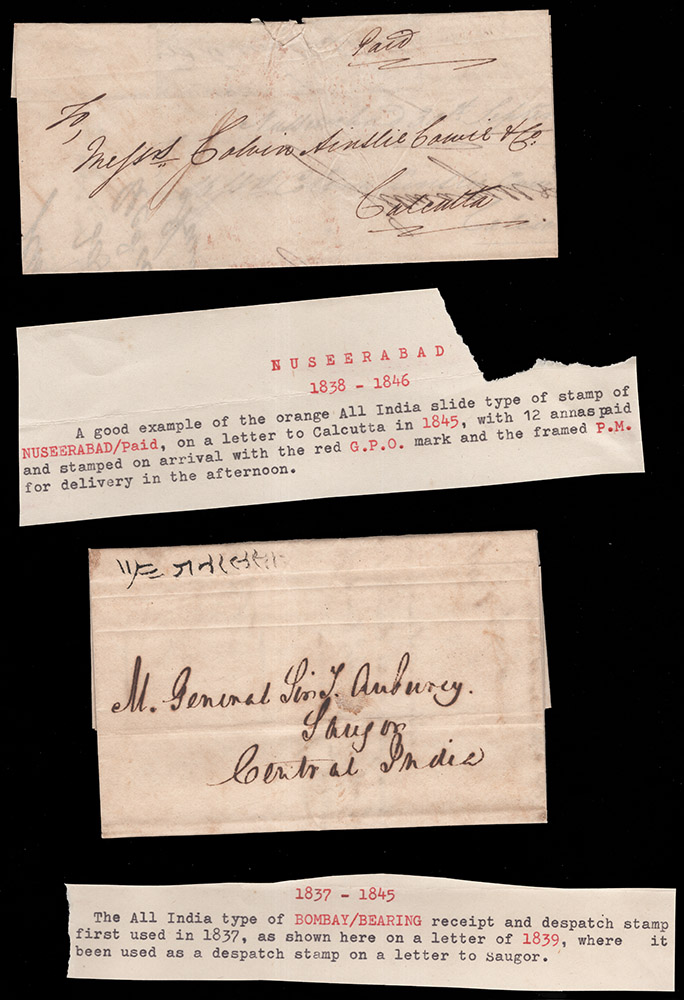 Paid
To,
Messrs Colvin Ainslie Cowie & Co.
Calcutta
NUSEERABAD
1838 - 1846
A good example of the orange All India slide type of stamp of
NUSEERABAD/Paid, on a letter to Calcutta in 1845, with 12 annas paid
and stamped on arrival with the red G.P.O. mark and the framed P.M.
for delivery in the afternoon.
M. General Sir T. Anburey.
Saugor
Central India
1837 - 1845
The All India type of BOMBAY/BEARING receipt and despatch stamp
first used in 1837, as shown here on a letter of 1839, where it
been used as a despatch stamp on a letter to Saugor.